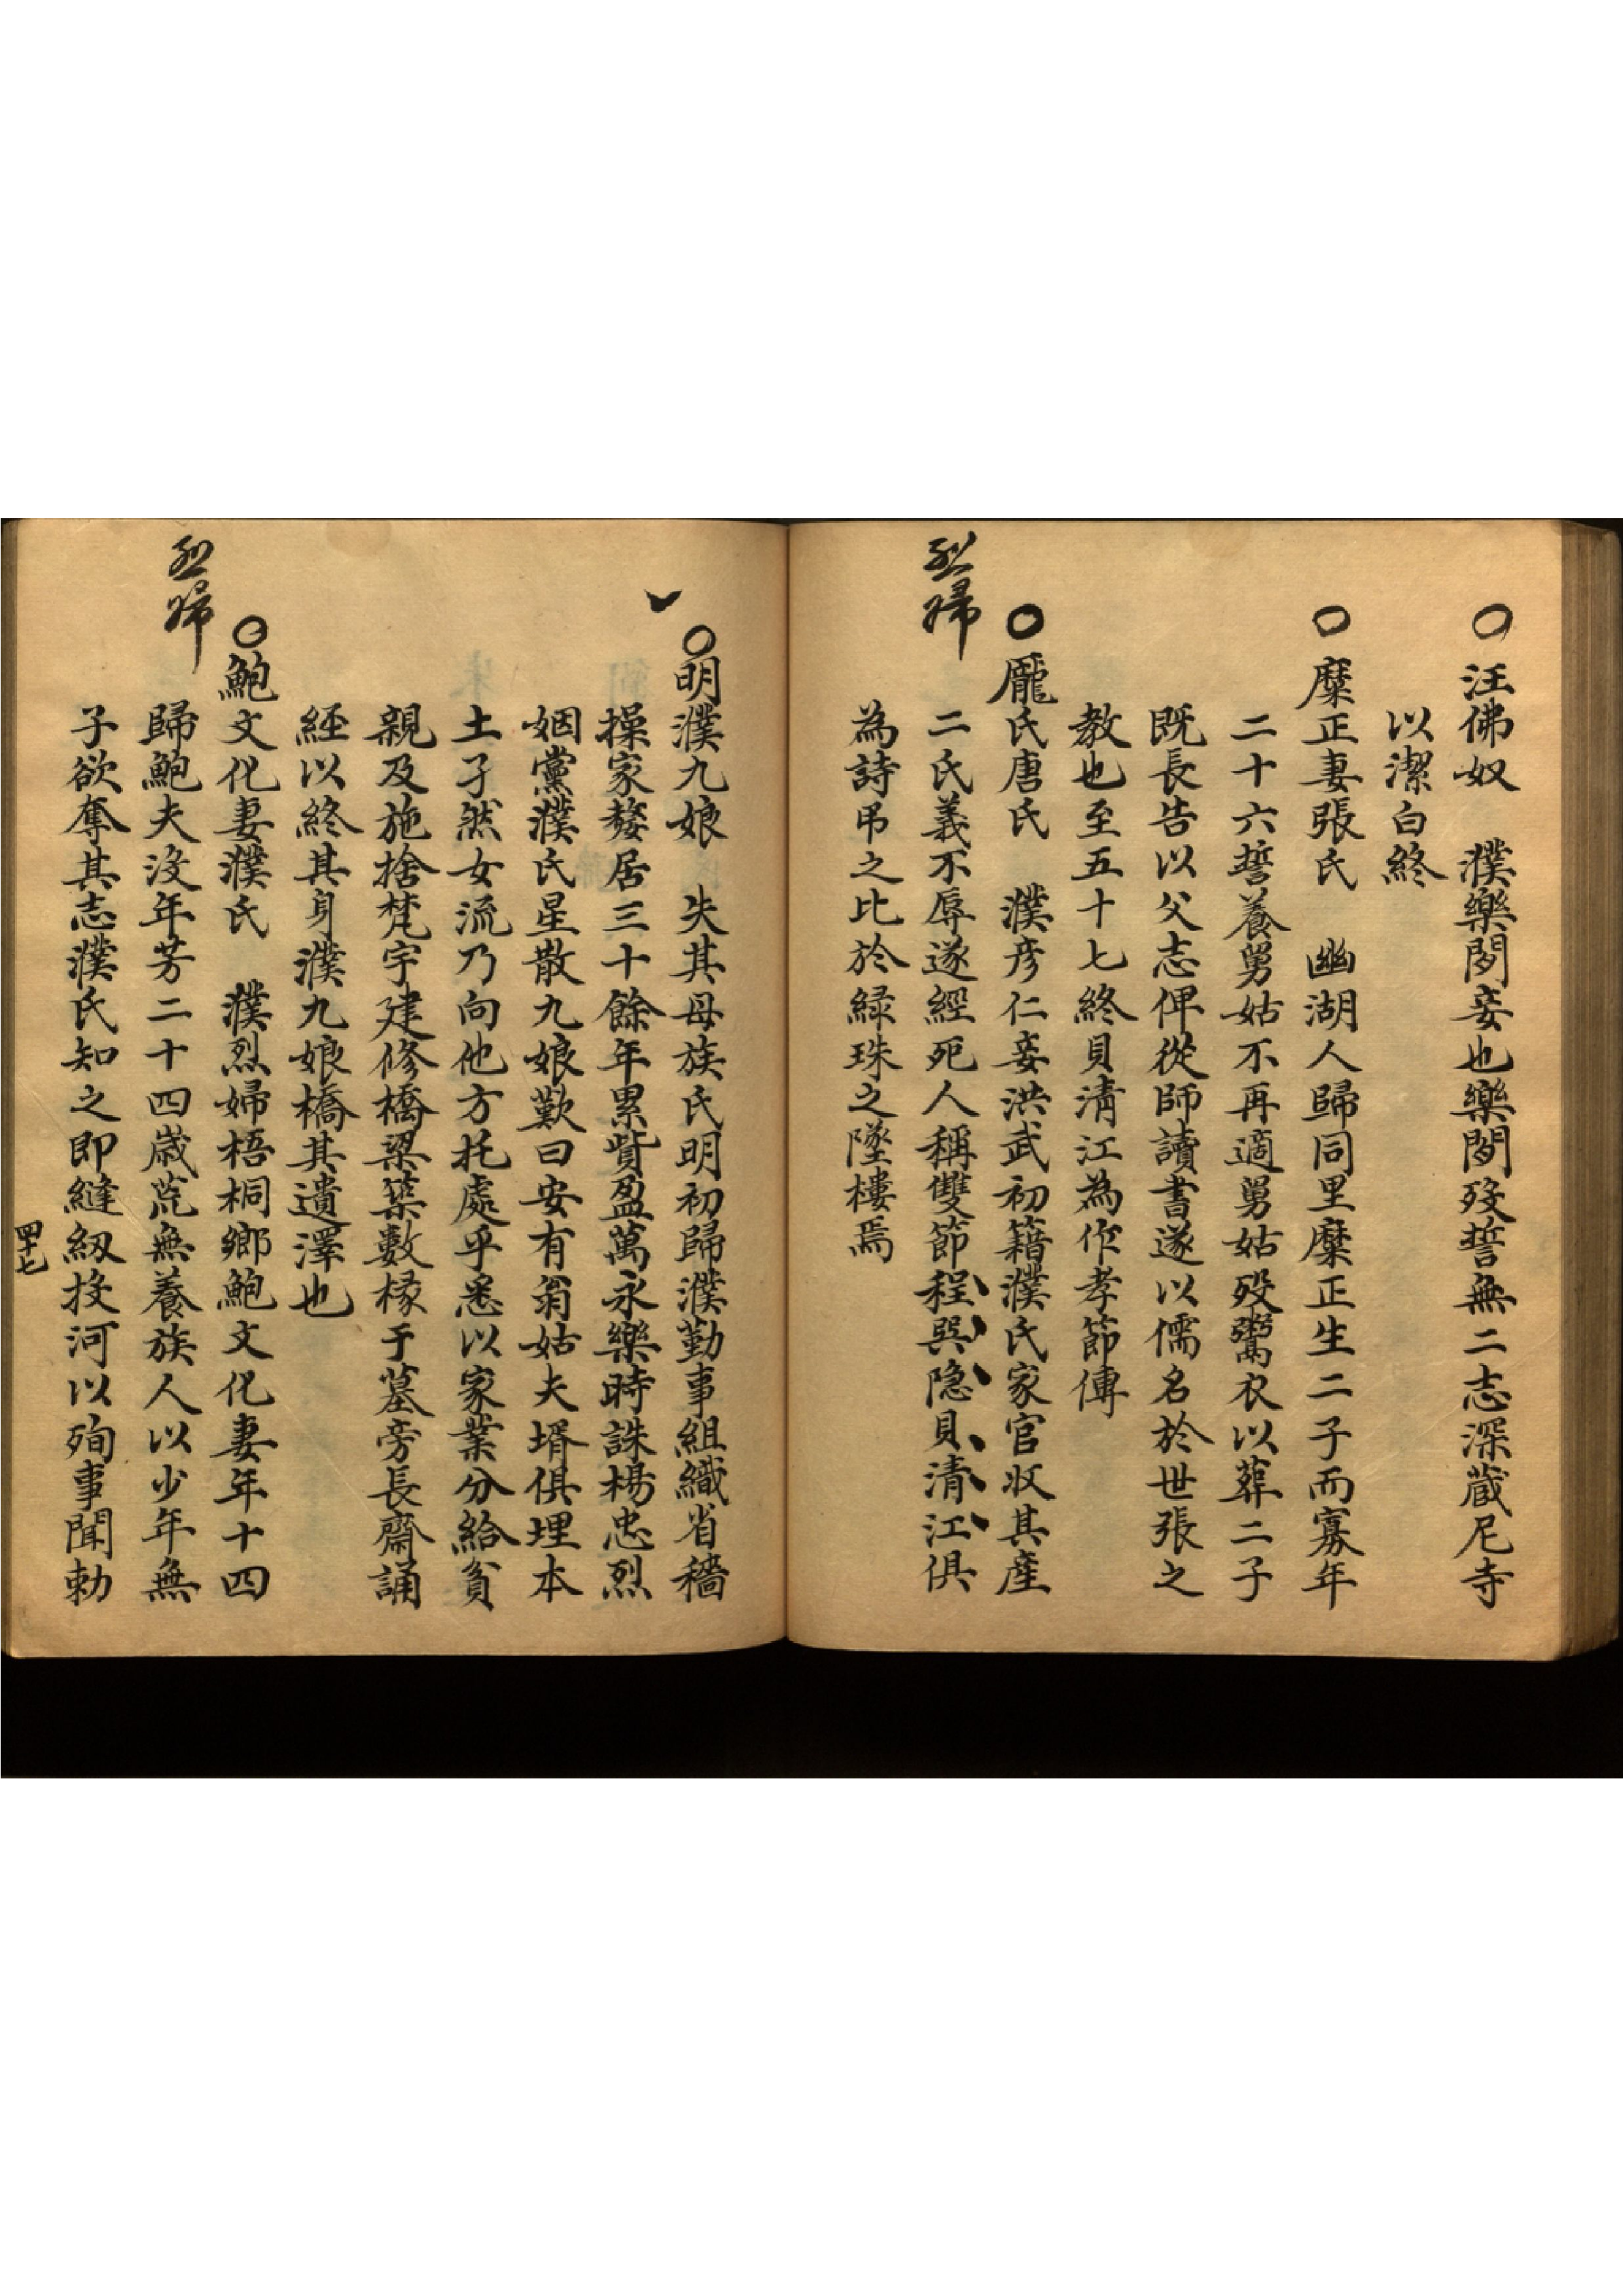 ○汪佛奴　濮樂閒妾也樂閒歿誓無二志深蔵尼寺
以潔白終
○糜正妻張氏　幽湖人歸同里糜正生二子而寡年
二十六誓養舅姑不再適舅姑歿鬻衣以葬二子
既長告以父志俾從師讀書遂以儒名於世張之
教也至五十七終貝清江為作孝節傳
○龎氏唐氏　濮彦仁妾洪武初籍濮氏家官收其産
烈婦
二氏義不辱遂經死人稱雙節程巽隐貝清江俱
為詩吊之比於緑珠之墜樓焉
○明濮九娘　失其母族氏明初歸濮勤事組織省穡
操家嫠居三十餘年累貲盈萬永樂時誅楊忠烈
姻黨濮氏星散九娘歎曰安有翁姑夫壻俱埋本
土孑然女流乃向他方托處乎悉以家業分給貧
親及施捨梵宇建修橋梁築數椽于墓旁長齋誦
經以終其身濮九娘橋其遺澤也
○鮑文化妻濮氏　濮烈婦梧桐鄉鮑文化妻年十四
烈婦
歸鮑夫没年芳二十四歳茕無養族人以少年無
子欲奪其志濮氏知之即縫紉投河以殉事聞勅
四十七